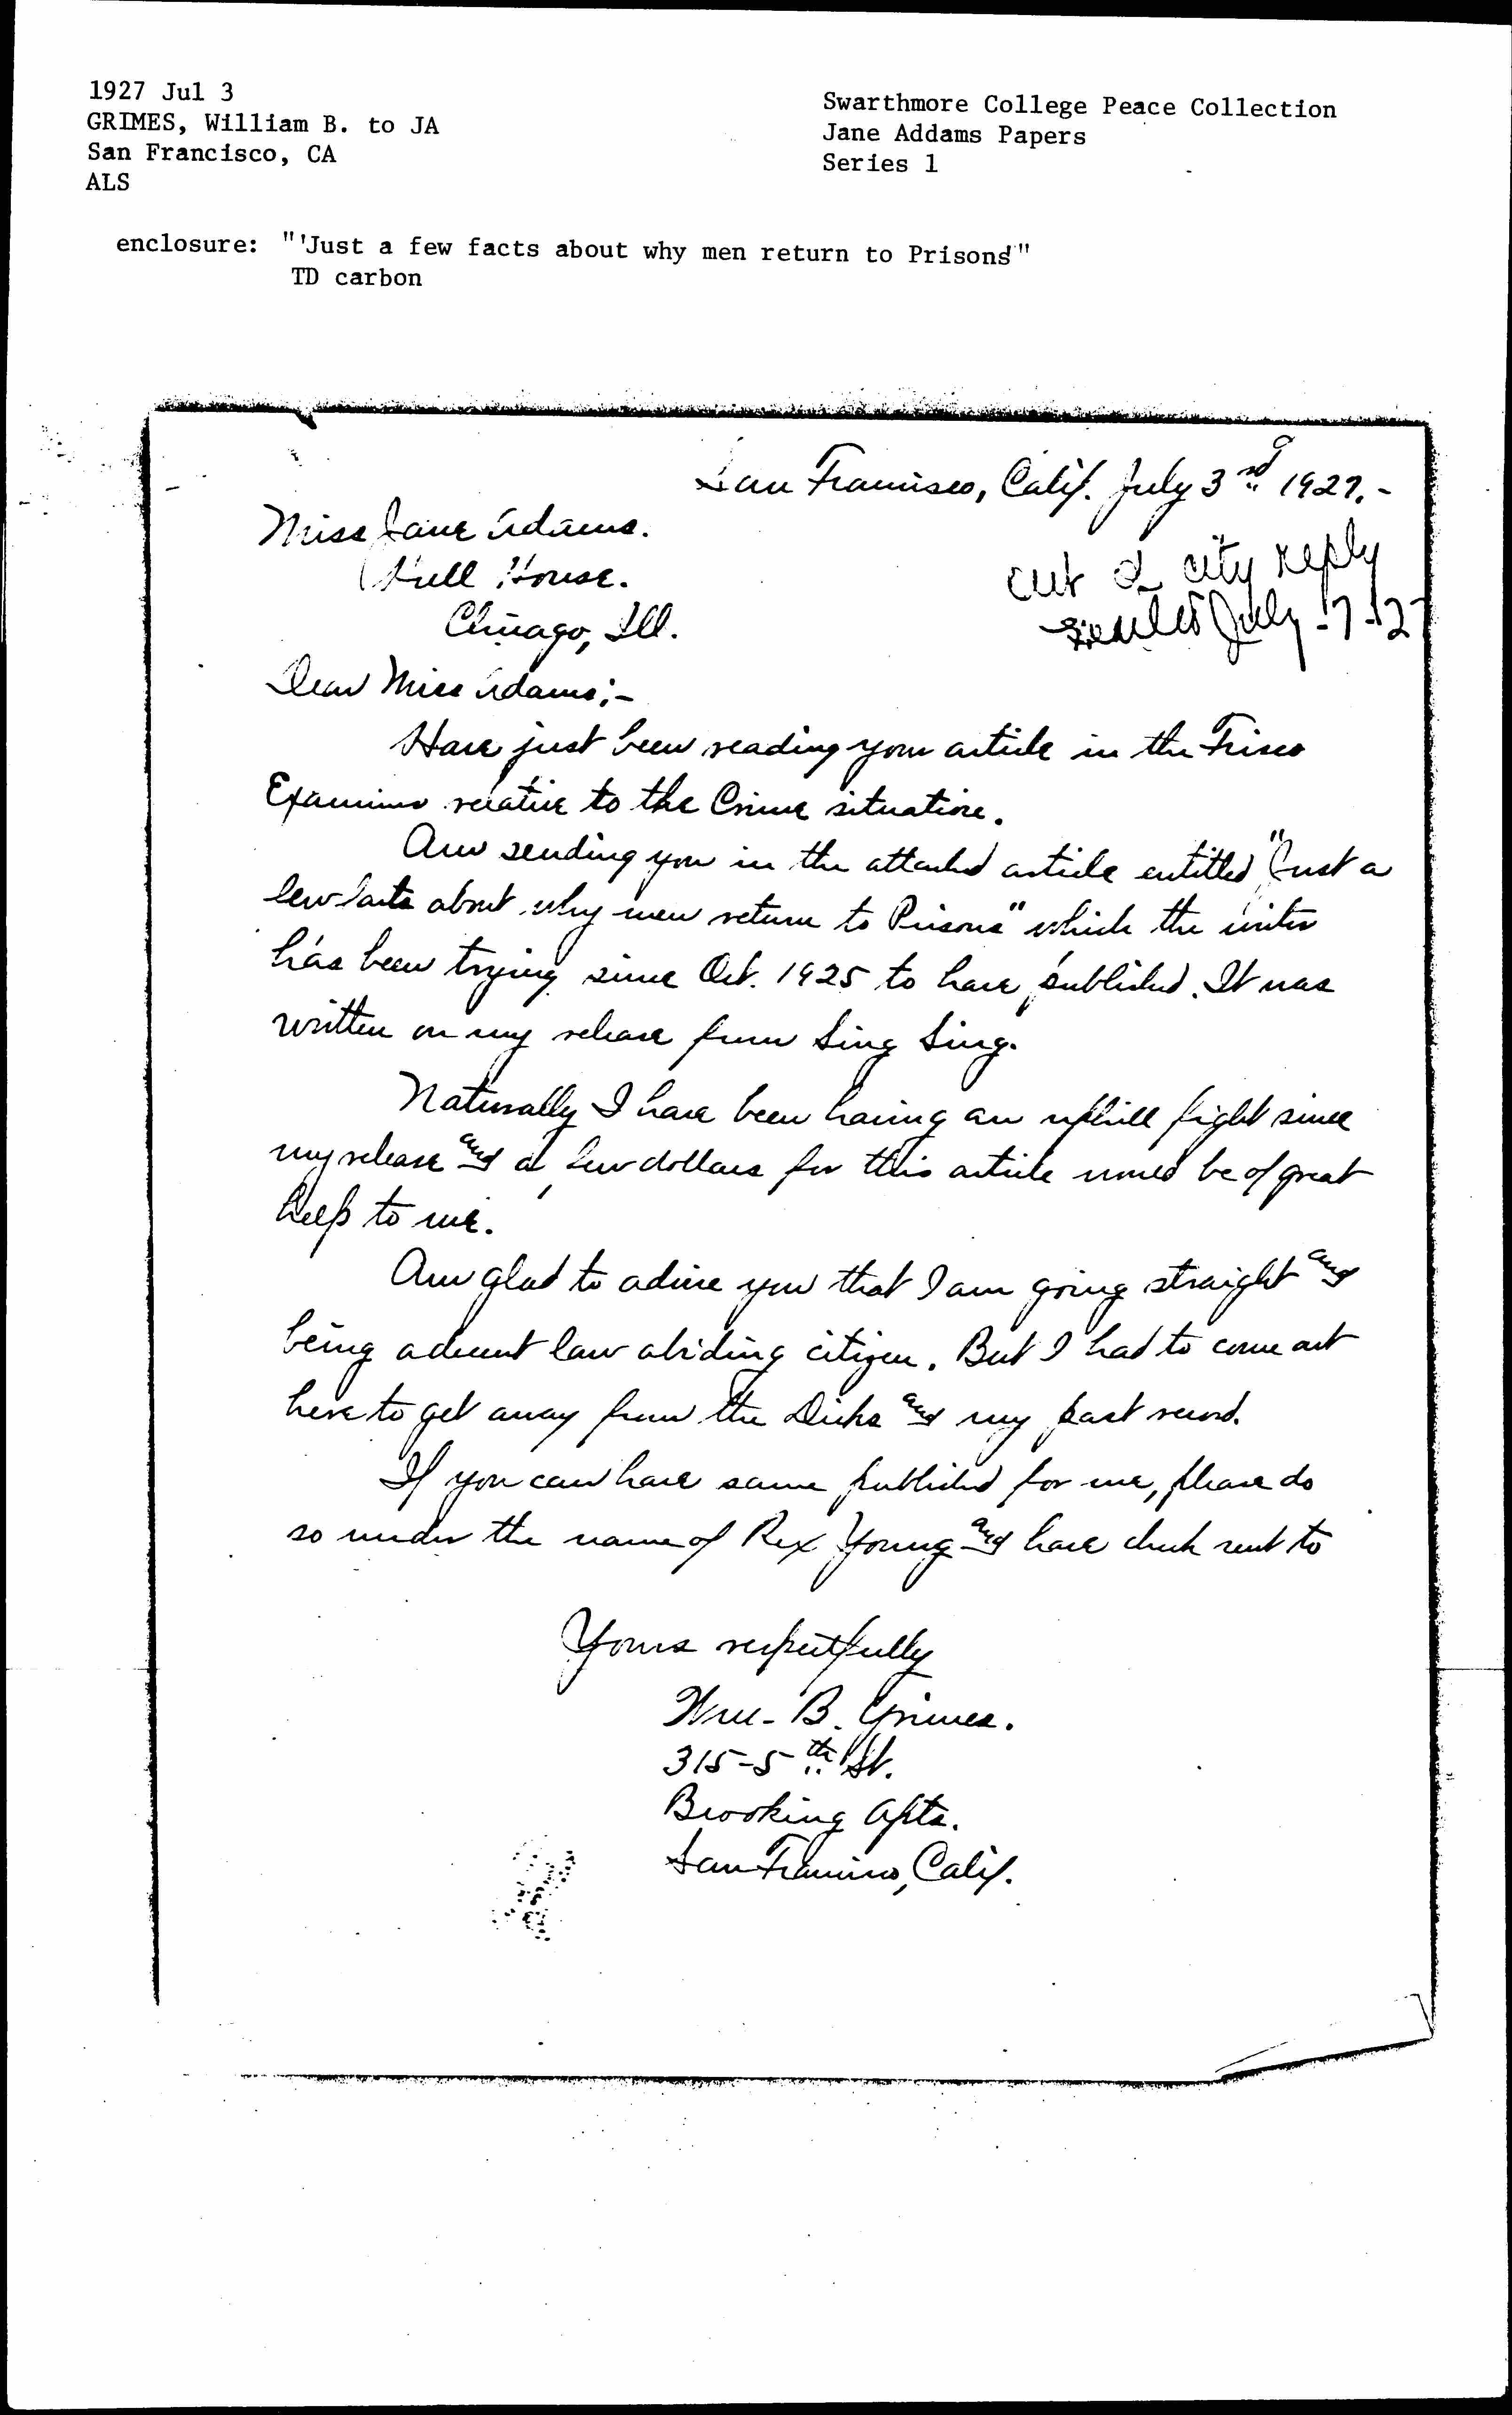 1927 Jul 3
GRIMES, William B. to JA
San Francisco, CA
ALS
Swarthmore College Peace Collection
Jane Addams Papers
Series 1
enclosure: "'Just a few facts about why men return to Prisons'"
TD carbon
San Francisco, Calif. July 3rd 1927.-
Miss Jane Adams.
Hull House.
Chicago, Ill.
out of city reply
July -7-27
Dear Miss Adams;-
Have just been reading your article in the Frisco
Examiner relative to the Crime situation.
Am sending you in the attached article entitled "Just a
few facts about why men return to Prisons" which the writer
has been trying since Oct. 1925 to have published. It was
written on my release from Sing Sing.
Naturally I have been having an uphill fight since
my release and a few dollars for this article would be of great
help to me.
Am glad to advise you that I am going straight and
being a decent law abiding citizen. But I had to come out
here to get away from the Dicks and my past record.
If you can have same published for me, please do
so under the name of Rex Young and have check sent to
Yours respectfully
Wm. B. Grimes.
315-5th St.
Brooking Apts.
San Francisco, Calif.